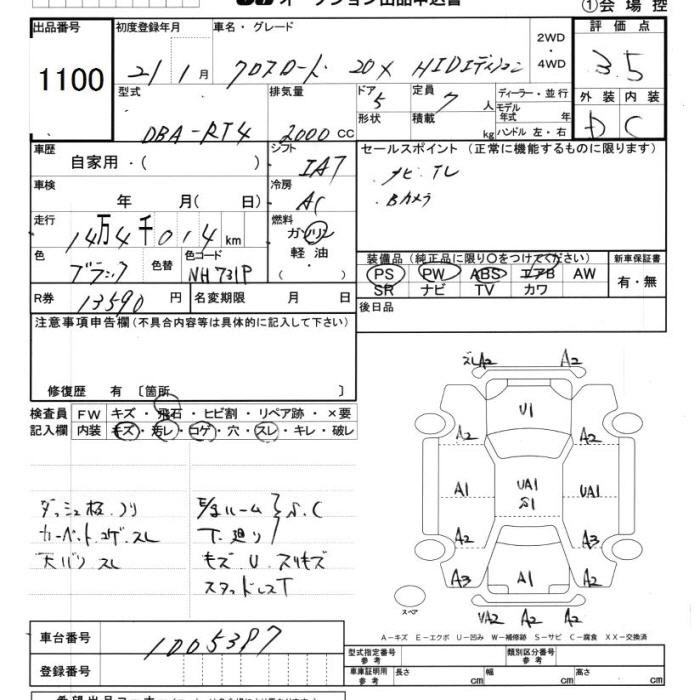 オークション出品申込書
①会場控
出品番号
1100
初度登録年月
21年1月
車名・グレード
クロスロード 20X HIDエディション
2WD・4WD
評価点
3.5
型式
DBA-RT4
排気量
2000cc
ドア
5
形状
定員
7人
積載 kg
ディーラー・並行
モデル年式 年
ハンドル 左・右
外装 内装
D C
車歴
自家用・( )
シフト
IAT
セールスポイント(正常に機能するものに限ります)
ナビ TL
Bカメラ
車検
年 月( 日)
冷房
AC
走行
14万4千014km
燃料
ガソリン
軽油
・( )
色
ブラック
色替
色コード
NH731P
装備品(純正品に限り〇をつけてください)
PS PW ABS エアB AW
SR ナビ TV カワ
新車保証書
有・無
R券
13590円
名変期限 月 日
後日品
注意事項申告欄(不具合内容等は具体的に記入して下さい)
修復歴 有〔箇所 〕
検査員記入欄
FW キズ・飛石・ヒビ割・リペア跡・×要
内装 キズ・汚レ・コゲ・穴・スレ・キレ・破レ
カーペットコゲ スレ
天バリ スレ
S.C
下廻り
キズ U スリキズ
スタッドレスT
ズレA2 A2
U1
A2 A2
A1 UA1 S1 UA1
A2 A3
A3 A1 A2
UA2 A2 A2
スペア
A-キズ E-エクボ U-凹み W-補修跡 S-サビ C-腐食 XX-交換済
車台番号
1005397
登録番号
型式指定番号 参考
類別区分番号 参考
車庫証明用 参考
長さ cm 幅 cm 高さ cm